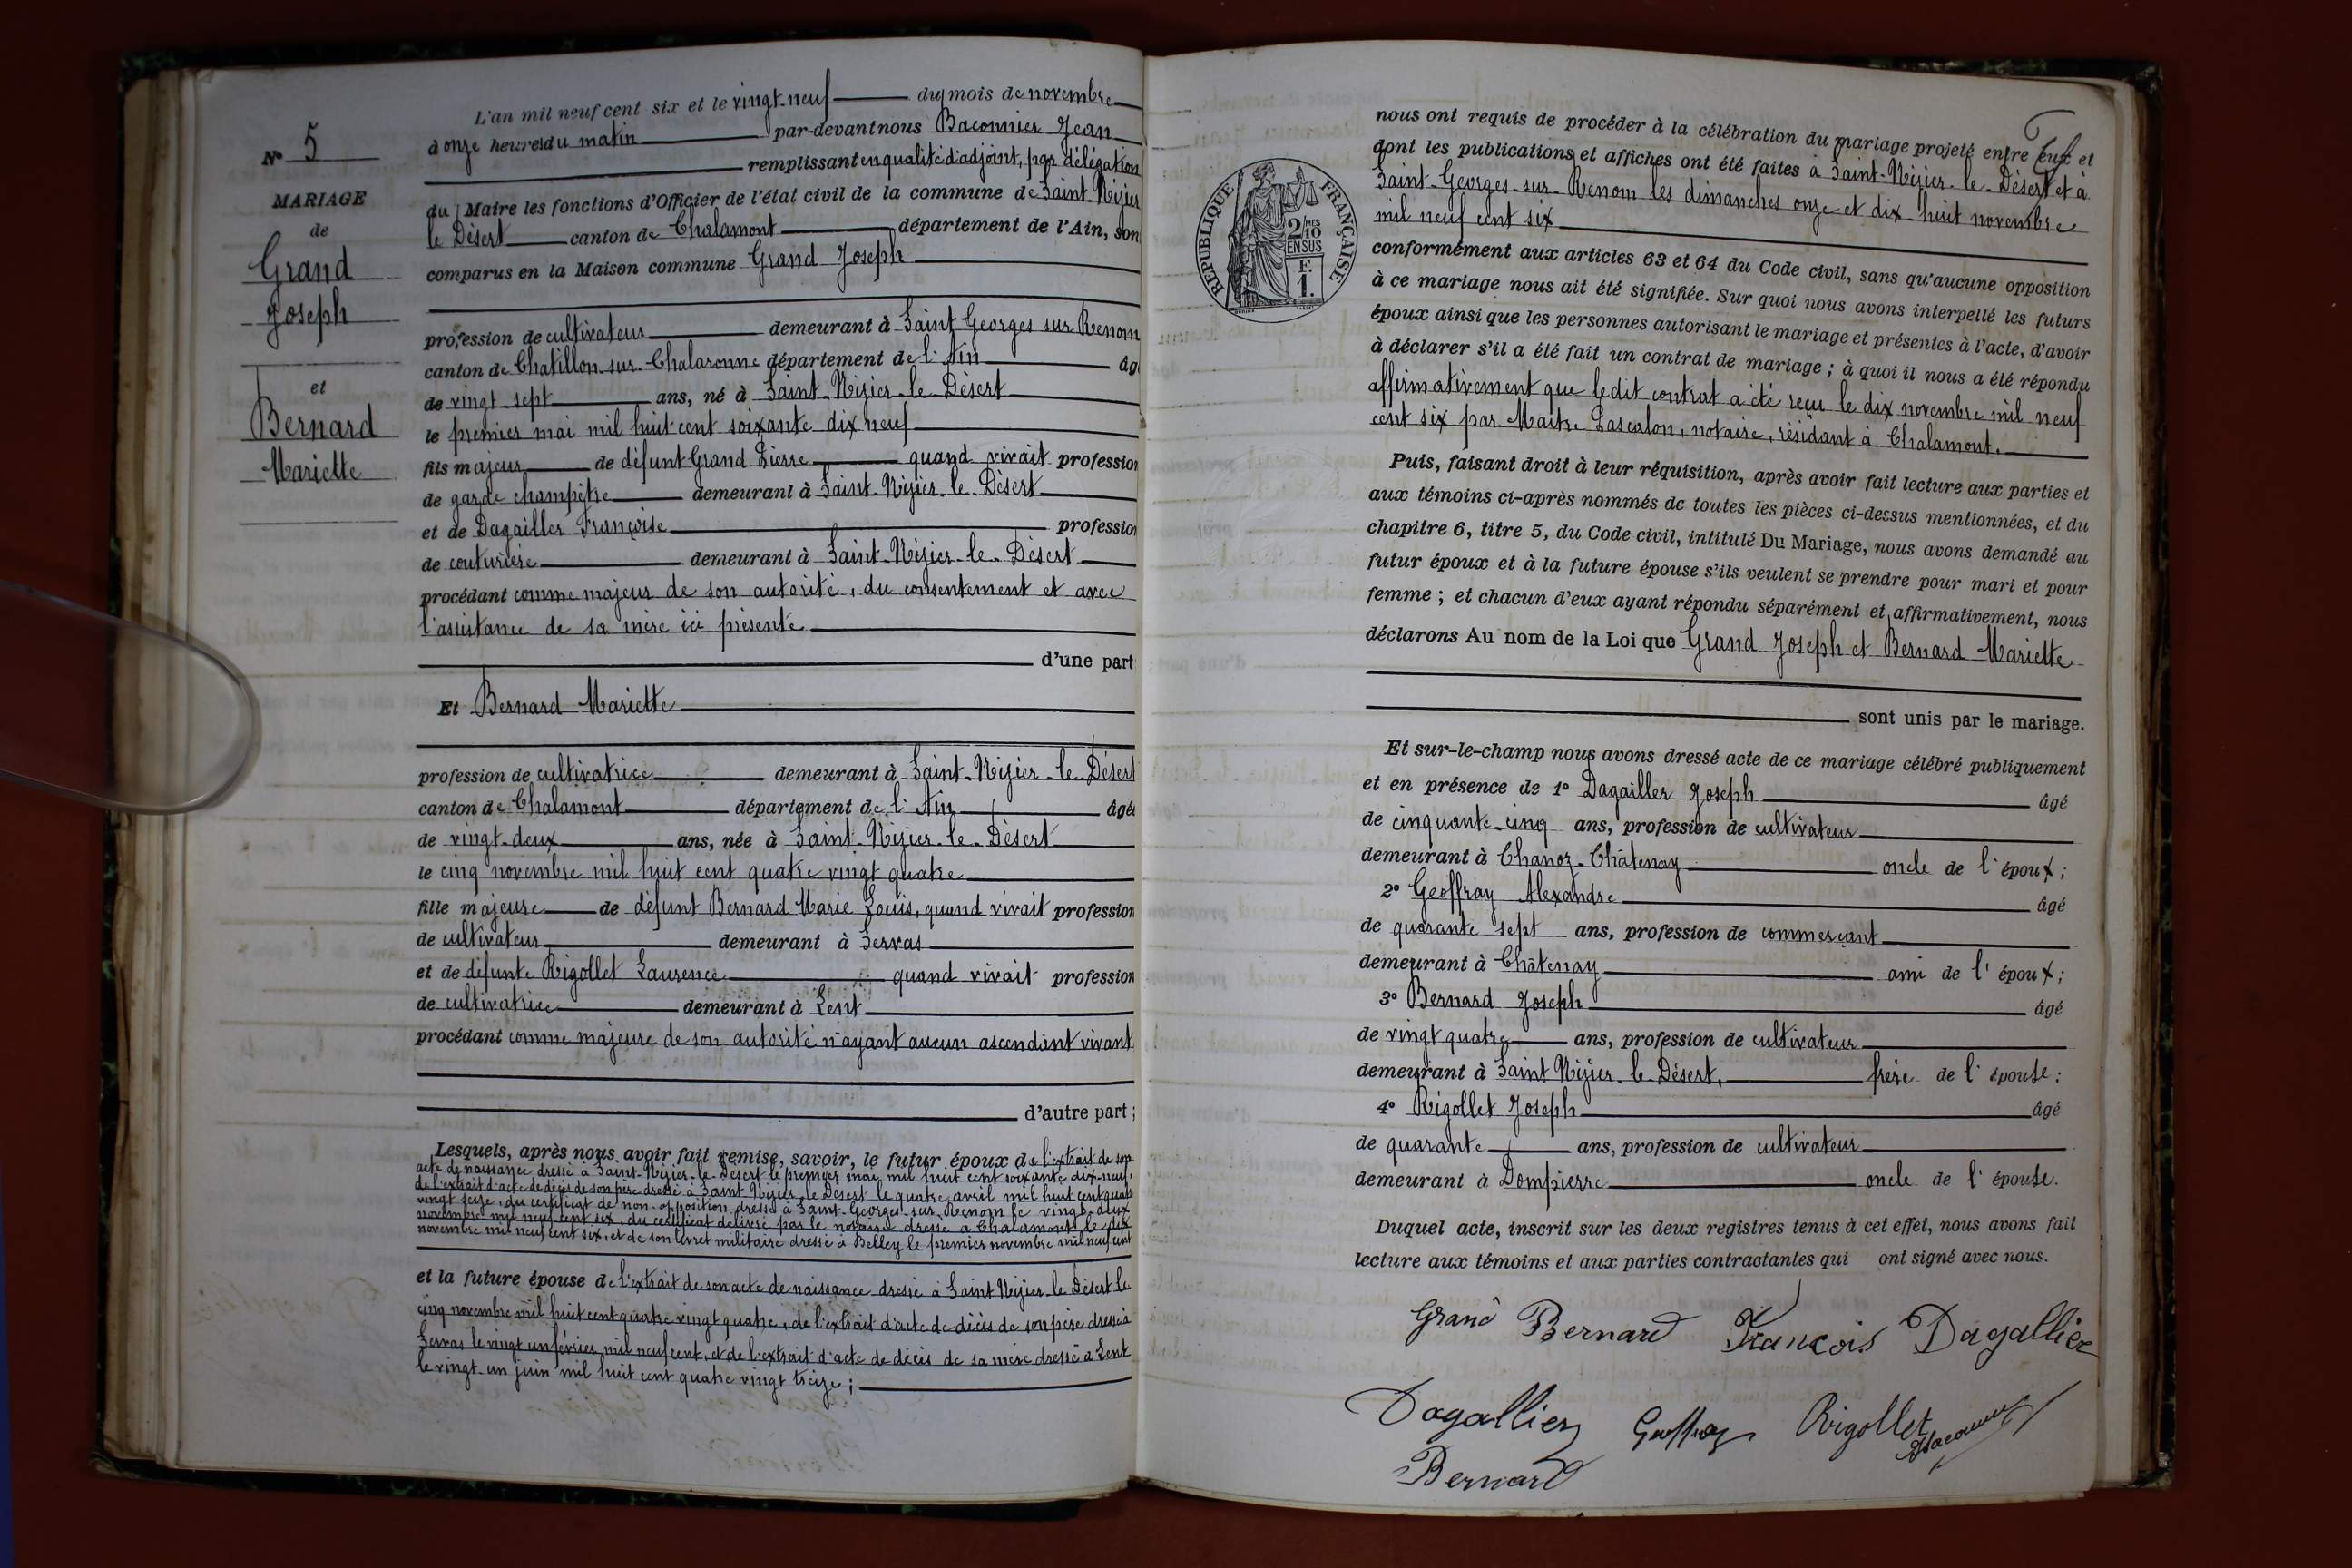 L'an mil neuf cent six et le vingt-neuf du mois de novembre
à onze heures du matin par-devant nous Baconnier Jean
remplissant en qualité d'adjoint, par délégation
du Maire les fonctions d'Officier de l'état civil de la commune de Saint-Nizier
le Désert canton de Chalamont département de l'Ain, son
comparus en la Maison commune Grand Joseph
profession de cultivateur demeurant à Saint Georges sur Renom
canton de Chatillon-sur-Chalaronne département de l'Ain âg
de vingt-sept ans, né à Saint-Nizier-le-Désert
le premier mai mil huit cent soixante dix neuf
fils majeur de défunt Grand Pierre quand vivait profession
de garde champêtre demeurant à Saint-Nizier-le-Désert
et de Dagailler Françoise profession
de couturière demeurant à Saint-Nizier-le-Désert
procédant comme majeur de son autorité, du consentement et avec
l'assistance de sa mère ici présente
d'une part
N° 5
MARIAGE
de
Grand
Joseph
et
Bernard
Mariette
Et Bernard Mariette
profession de cultivatrice demeurant à Saint-Nizier-le-Désert
canton de Chalamont département de l'Ain âgé
de vingt-deux ans, née à Saint-Nizier-le-Désert
le cinq novembre mil huit cent quatre vingt quatre
fille majeure de défunt Bernard Marie Louis, quand vivait profession
de cultivateur demeurant à Servas
et de défunte Rigollet Laurence quand vivait profession
de cultivatrice demeurant à Lent
procédant comme majeure de son autorité n'ayant aucun ascendant vivant
d'autre part;
Lesquels, après nous avoir fait remise, savoir, le futur époux de l'extrait de son
acte de naissance dressé à Saint-Nizier-le-Désert le premier mai mil huit cent soixante dix-neuf,
de l'extrait d'acte de décès de son père dressé à Saint Nizier-le-Désert le quatre avril mil huit cent quatre
vingt seize, du certificat de non-opposition dressé à Saint-Georges-sur-Renom le vingt-deux
novembre mil neuf cent six, du certificat délivré par le notaire dressé à Chalamont le dix
novembre mil neuf cent six, et de son livret militaire dressé à Belley le premier novembre mil neuf cent
et la future épouse de l'extrait de son acte de naissance dressé à Saint Nizier-le-Désert le
cinq novembre mil huit cent quatre vingt quatre, de l'extrait d'acte de décès de son père dressé à
Servas le vingt un février mil neuf cent, et de l'extrait d'acte de décès de sa mère dressé à Lent
le vingt-un juin mil huit cent quatre vingt treize;
nous ont requis de procéder à la célébration du mariage projeté entre eux et
dont les publications et affiches ont été faites à Saint-Nizier-le-Désert et à
Saint-Georges-sur-Renom les dimanches onze et dix-huit novembre
mil neuf cent six
conformément aux articles 63 et 64 du Code civil, sans qu'aucune opposition
à ce mariage nous ait été signifiée. Sur quoi nous avons interpellé les futurs
époux ainsi que les personnes autorisant le mariage et présentes à l'acte, d'avoir
à déclarer s'il a été fait un contrat de mariage; à quoi il nous a été répondu
affirmativement que ledit contrat a été reçu le dix novembre mil neuf
cent six par Maitre Lascalon, notaire, résidant à Chalamont.
RÉPUBLIQUE FRANÇAISE
2/10
EN SUS
F.
1.
Puis, faisant droit à leur réquisition, après avoir fait lecture aux parties et
aux témoins ci-après nommés de toutes les pièces ci-dessus mentionnées, et du
chapitre 6, titre 5, du Code civil, intitulé Du Mariage, nous avons demandé au
futur époux et à la future épouse s'ils veulent se prendre pour mari et pour
femme; et chacun d'eux ayant répondu séparément et affirmativement, nous
déclarons Au nom de la Loi que Grand Joseph et Bernard Mariette
sont unis par le mariage.
Et sur-le-champ nous avons dressé acte de ce mariage célébré publiquement
et en présence de 1° Dagailler Joseph âgé
de cinquante-cinq ans, profession de cultivateur
demeurant à Chanoz-Châtenay oncle de l'époux;
2° Geoffray Alexandre âgé
de quarante sept ans, profession de commerçant
demeurant à Châtenay ami de l'époux;
3° Bernard Joseph âgé
de vingt quatre ans, profession de cultivateur
demeurant à Saint Nizier-le-Désert, frère de l'épouse:
4° Rigollet Joseph âgé
de quarante ans, profession de cultivateur
demeurant à Dompierre oncle de l'épouse.
Duquel acte, inscrit sur les deux registres tenus à cet effet, nous avons fait
lecture aux témoins et aux parties contractantes qui ont signé avec nous.
Grand Bernard François Dagallier
Dagallier Geoffray Rigollet Baconnier
Bernard